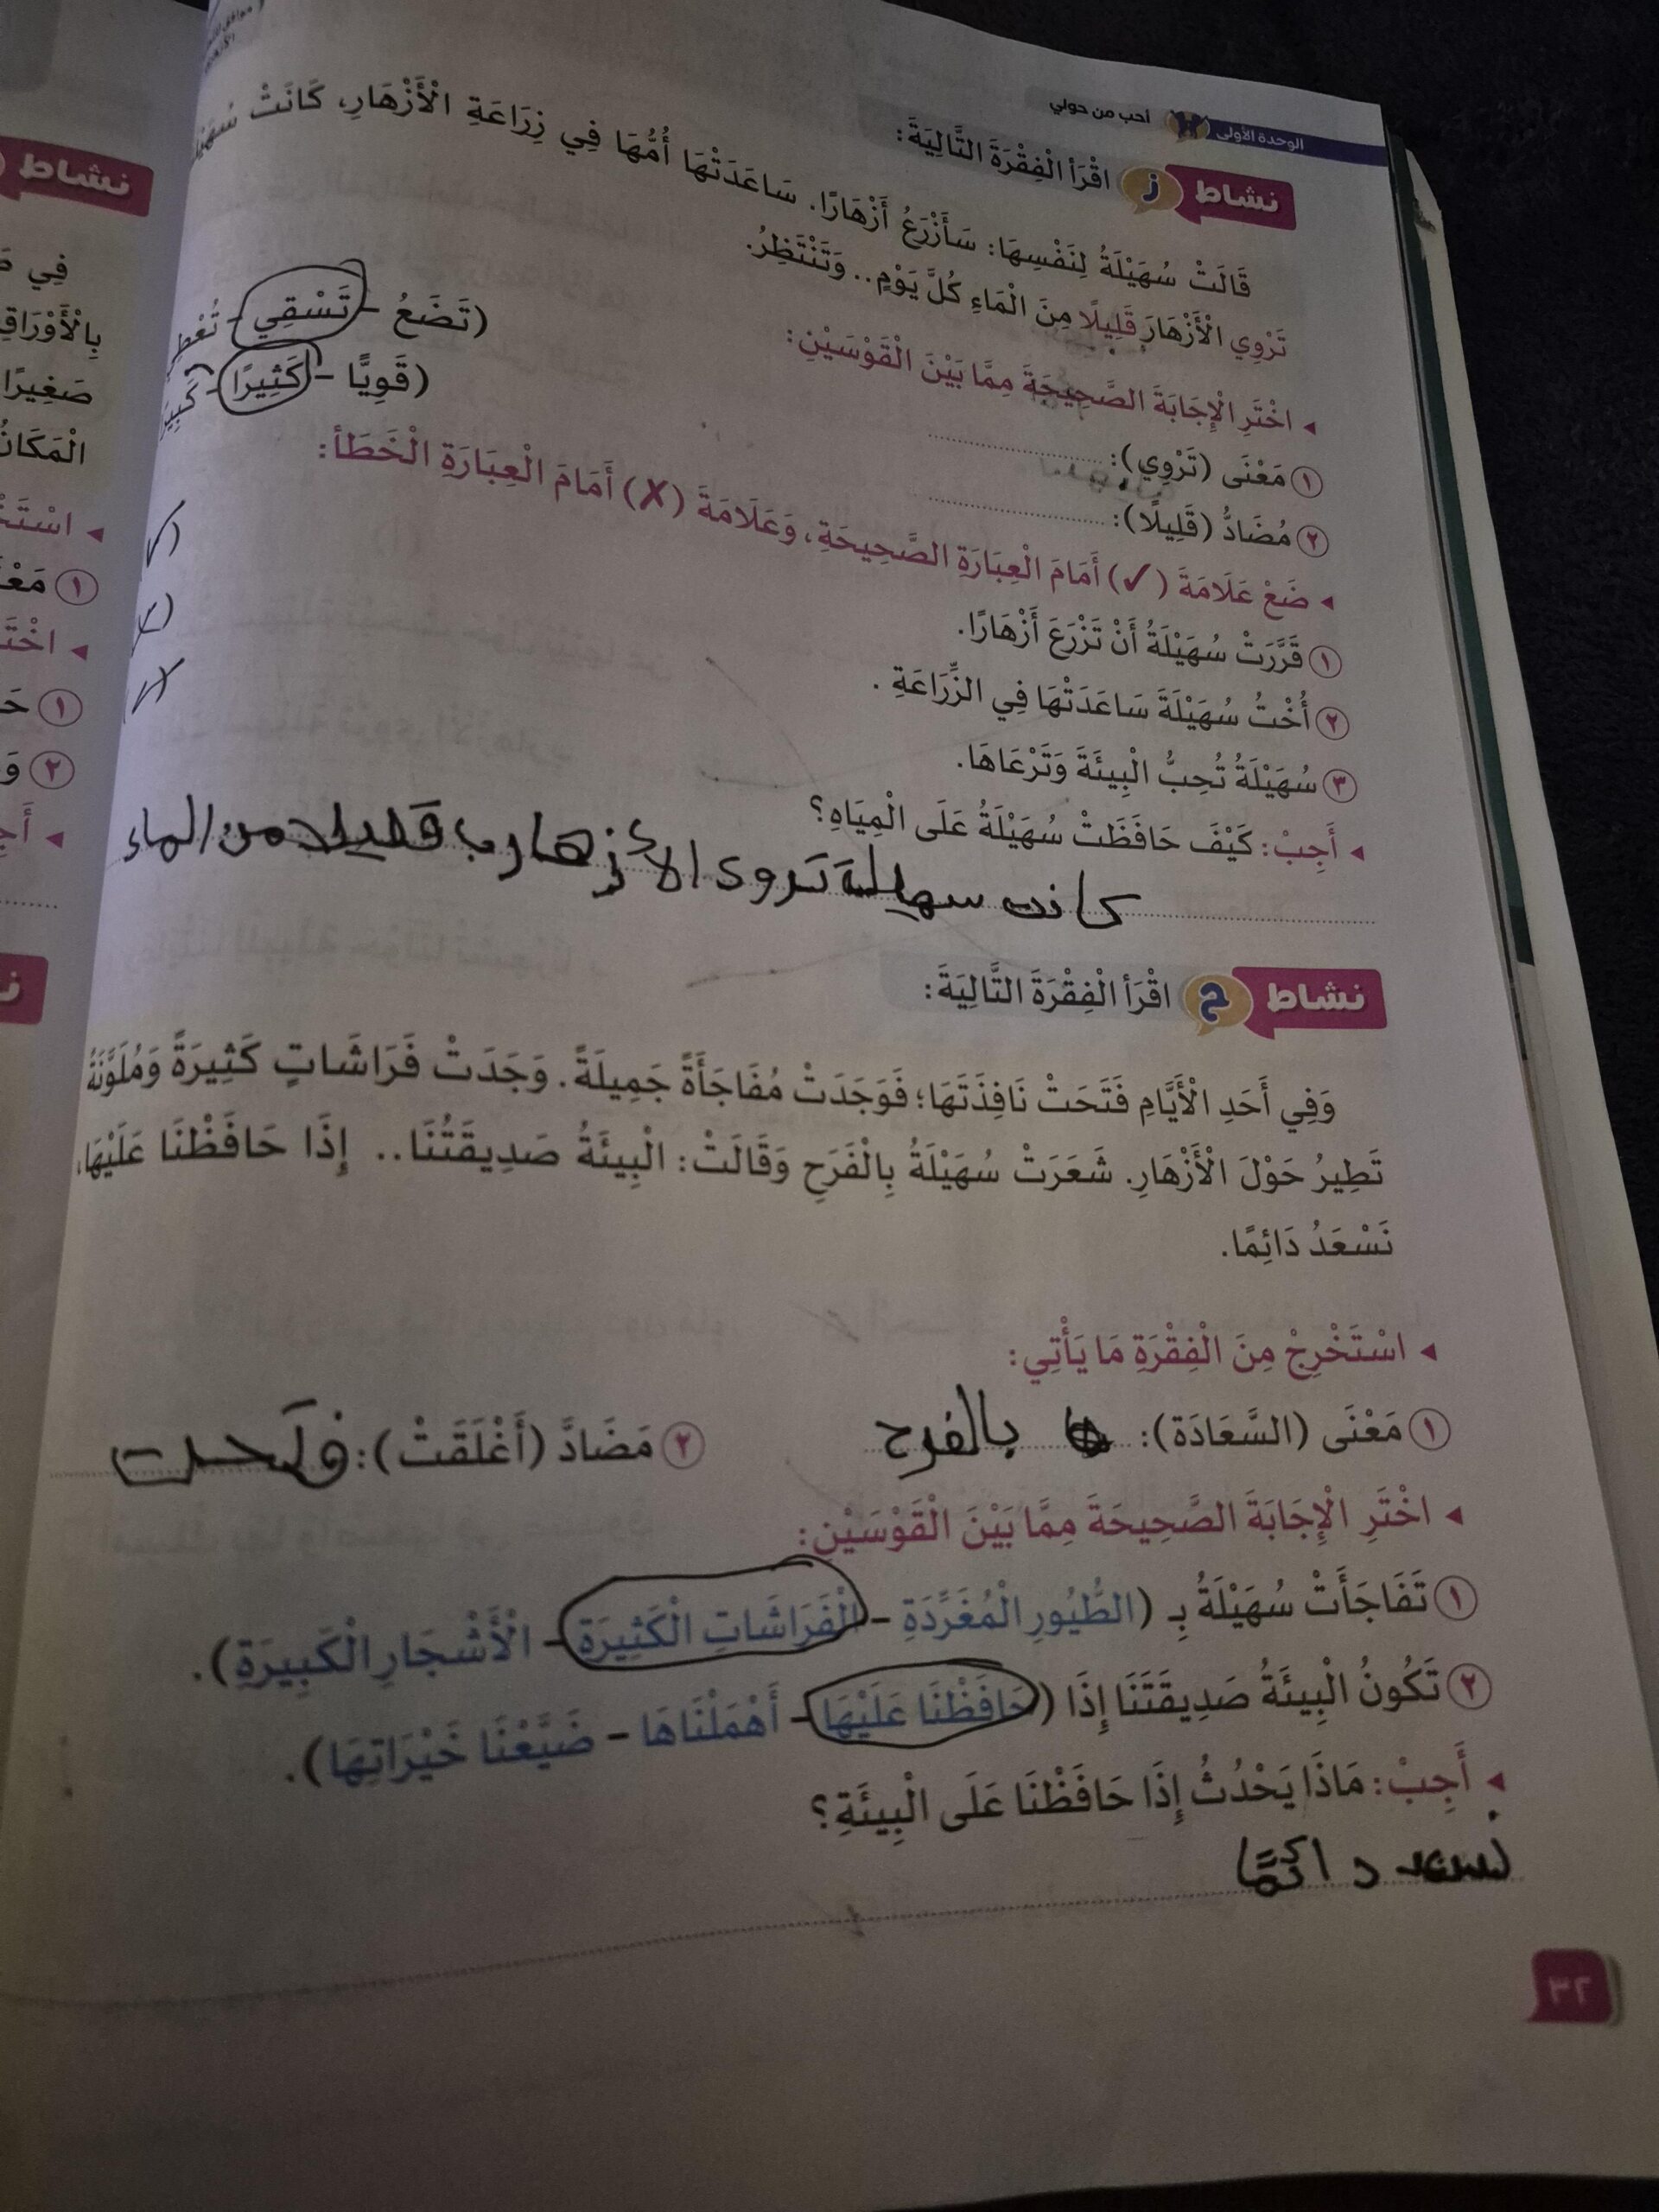 الوحدة الأولى أحب من حولي
نشاط ز اقْرَأِ الْفِقْرَةَ التَّالِيَةَ:
قَالَتْ سُهَيْلَةُ لِنَفْسِهَا: سَأَزْرَعُ أَزْهَارًا. سَاعَدَتْهَا أُمُّهَا فِي زِرَاعَةِ الْأَزْهَارِ، كَانَتْ
تَرْوِي الْأَزْهَارَ قَلِيلًا مِنَ الْمَاءِ كُلَّ يَوْمٍ.. وَتَنْتَظِرُ.
◂ اخْتَرِ الْإِجَابَةَ الصَّحِيحَةَ مِمَّا بَيْنَ الْقَوْسَيْنِ:
١ مَعْنَى (تَرْوِي): (تَضَعُ - تَسْقِي -
٢ مُضَادُّ (قَلِيلًا): (قَوِيًّا - كَثِيرًا -
◂ ضَعْ عَلَامَةَ (✓) أَمَامَ الْعِبَارَةِ الصَّحِيحَةِ، وَعَلَامَةَ (✗) أَمَامَ الْعِبَارَةِ الْخَطَأ:
١ قَرَّرَتْ سُهَيْلَةُ أَنْ تَزْرَعَ أَزْهَارًا.
٢ أُخْتُ سُهَيْلَةَ سَاعَدَتْهَا فِي الزِّرَاعَةِ.
٣ سُهَيْلَةُ تُحِبُّ الْبِيئَةَ وَتَرْعَاهَا.
◂ أَجِبْ: كَيْفَ حَافَظَتْ سُهَيْلَةُ عَلَى الْمِيَاهِ؟
كانت سهيلة تروى الأزهار ب قليلا من الماء
نشاط ح اقْرَأِ الْفِقْرَةَ التَّالِيَةَ:
وَفِي أَحَدِ الْأَيَّامِ فَتَحَتْ نَافِذَتَهَا؛ فَوَجَدَتْ مُفَاجَأَةً جَمِيلَةً. وَجَدَتْ فَرَاشَاتٍ كَثِيرَةً وَمُلَوَّنَةً
تَطِيرُ حَوْلَ الْأَزْهَارِ. شَعَرَتْ سُهَيْلَةُ بِالْفَرَحِ وَقَالَتْ: الْبِيئَةُ صَدِيقَتُنَا.. إِذَا حَافَظْنَا عَلَيْهَا،
نَسْعَدُ دَائِمًا.
◂ اسْتَخْرِجْ مِنَ الْفِقْرَةِ مَا يَأْتِي:
١ مَعْنَى (السَّعَادَة): بالفرح ٢ مَضَادَّ (أَغْلَقَتْ): فتحت
◂ اخْتَرِ الْإِجَابَةَ الصَّحِيحَةَ مِمَّا بَيْنَ الْقَوْسَيْنِ:
١ تَفَاجَأَتْ سُهَيْلَةُ بِـ (الطُّيُورِ الْمُغَرِّدَةِ - الْفَرَاشَاتِ الْكَثِيرَةِ - الْأَشْجَارِ الْكَبِيرَةِ).
٢ تَكُونُ الْبِيئَةُ صَدِيقَتَنَا إِذَا (حَافَظْنَا عَلَيْهَا - أَهْمَلْنَاهَا - ضَيَّعْنَا خَيْرَاتِهَا).
◂ أَجِبْ: مَاذَا يَحْدُثُ إِذَا حَافَظْنَا عَلَى الْبِيئَةِ؟
نسعد دائمًا
٣٢